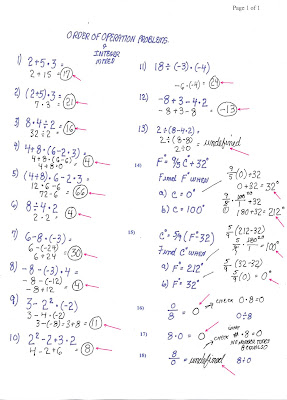 Page 1 of 1
ORDER OF OPERATION PROBLEMS
&
INTEGER
MIXED
1) 2+5·3 =
2+15 = 17
2) (2+5)·3 =
7·3 = 21
3) 8·4÷2 =
32÷2 = 16
4) 4+8·(6-2·3) =
4+8·(6-6) = 4
4+8·0
5) (4+8)·6-2·3 =
12·6-6
72-6 = 66
6) 8÷4·2 =
2·2 = 4
7) 6-8·(-3) =
6-(-24)
6+24 = 30
8) -8-(-3)·4 =
-8-(-12)
-8+12 = 4
9) 3-2²·(-2)
3-4·(-2)
3-(-8)=3+8 = 11
10) 2²-2+3·2
4-2+6 = 8
11) 18÷(-3)·(-4)
-6·(-4) = 24
12) -8+3-4·2
-8+3-8 = -13
13) 2÷(8-4·2) =
2÷(8-8)
2÷0 = undefined
14) F° = 9/5 C° + 32°
Find F° when
a) C = 0°
9/5(0)+32
0+32 = 32°
b) C = 100°
9/5 · 100/1 + 32
180+32 = 212°
15) C° = 5/9 (F° - 32)
Find C° when
a) F° = 212°
5/9(212-32)
5/9 · 180/1 = 100°
b) F° = 32
5/9(32-32)
5/9(0) = 0°
16) 0/8 = 0
CHECK 0·8=0
0÷8
17) 8·0 = 0
18) 8/0 = undefined
CHECK #·8=0
8÷0